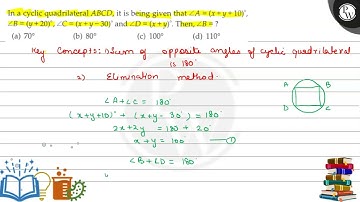 In a cyclic quadrilateral ABCD, it is being given that ∠A = (x + y + 10)°,
∠B = (y + 20)°, ∠C = (x + y – 30)° and ∠D = (x + y)°. Then, ∠B = ?
(a) 70° (b) 80° (c) 100° (d) 110°
Key Concepts: 1) Sum of opposite angles of cyclic quadrilateral
is 180°
2) Elimination method
A B
D C
∠A + ∠C = 180°
(x + y + 10)° + (x + y - 30°) = 180°
2x + 2y = 180 + 20°
x + y = 100° ①
∠B + ∠D = 180°